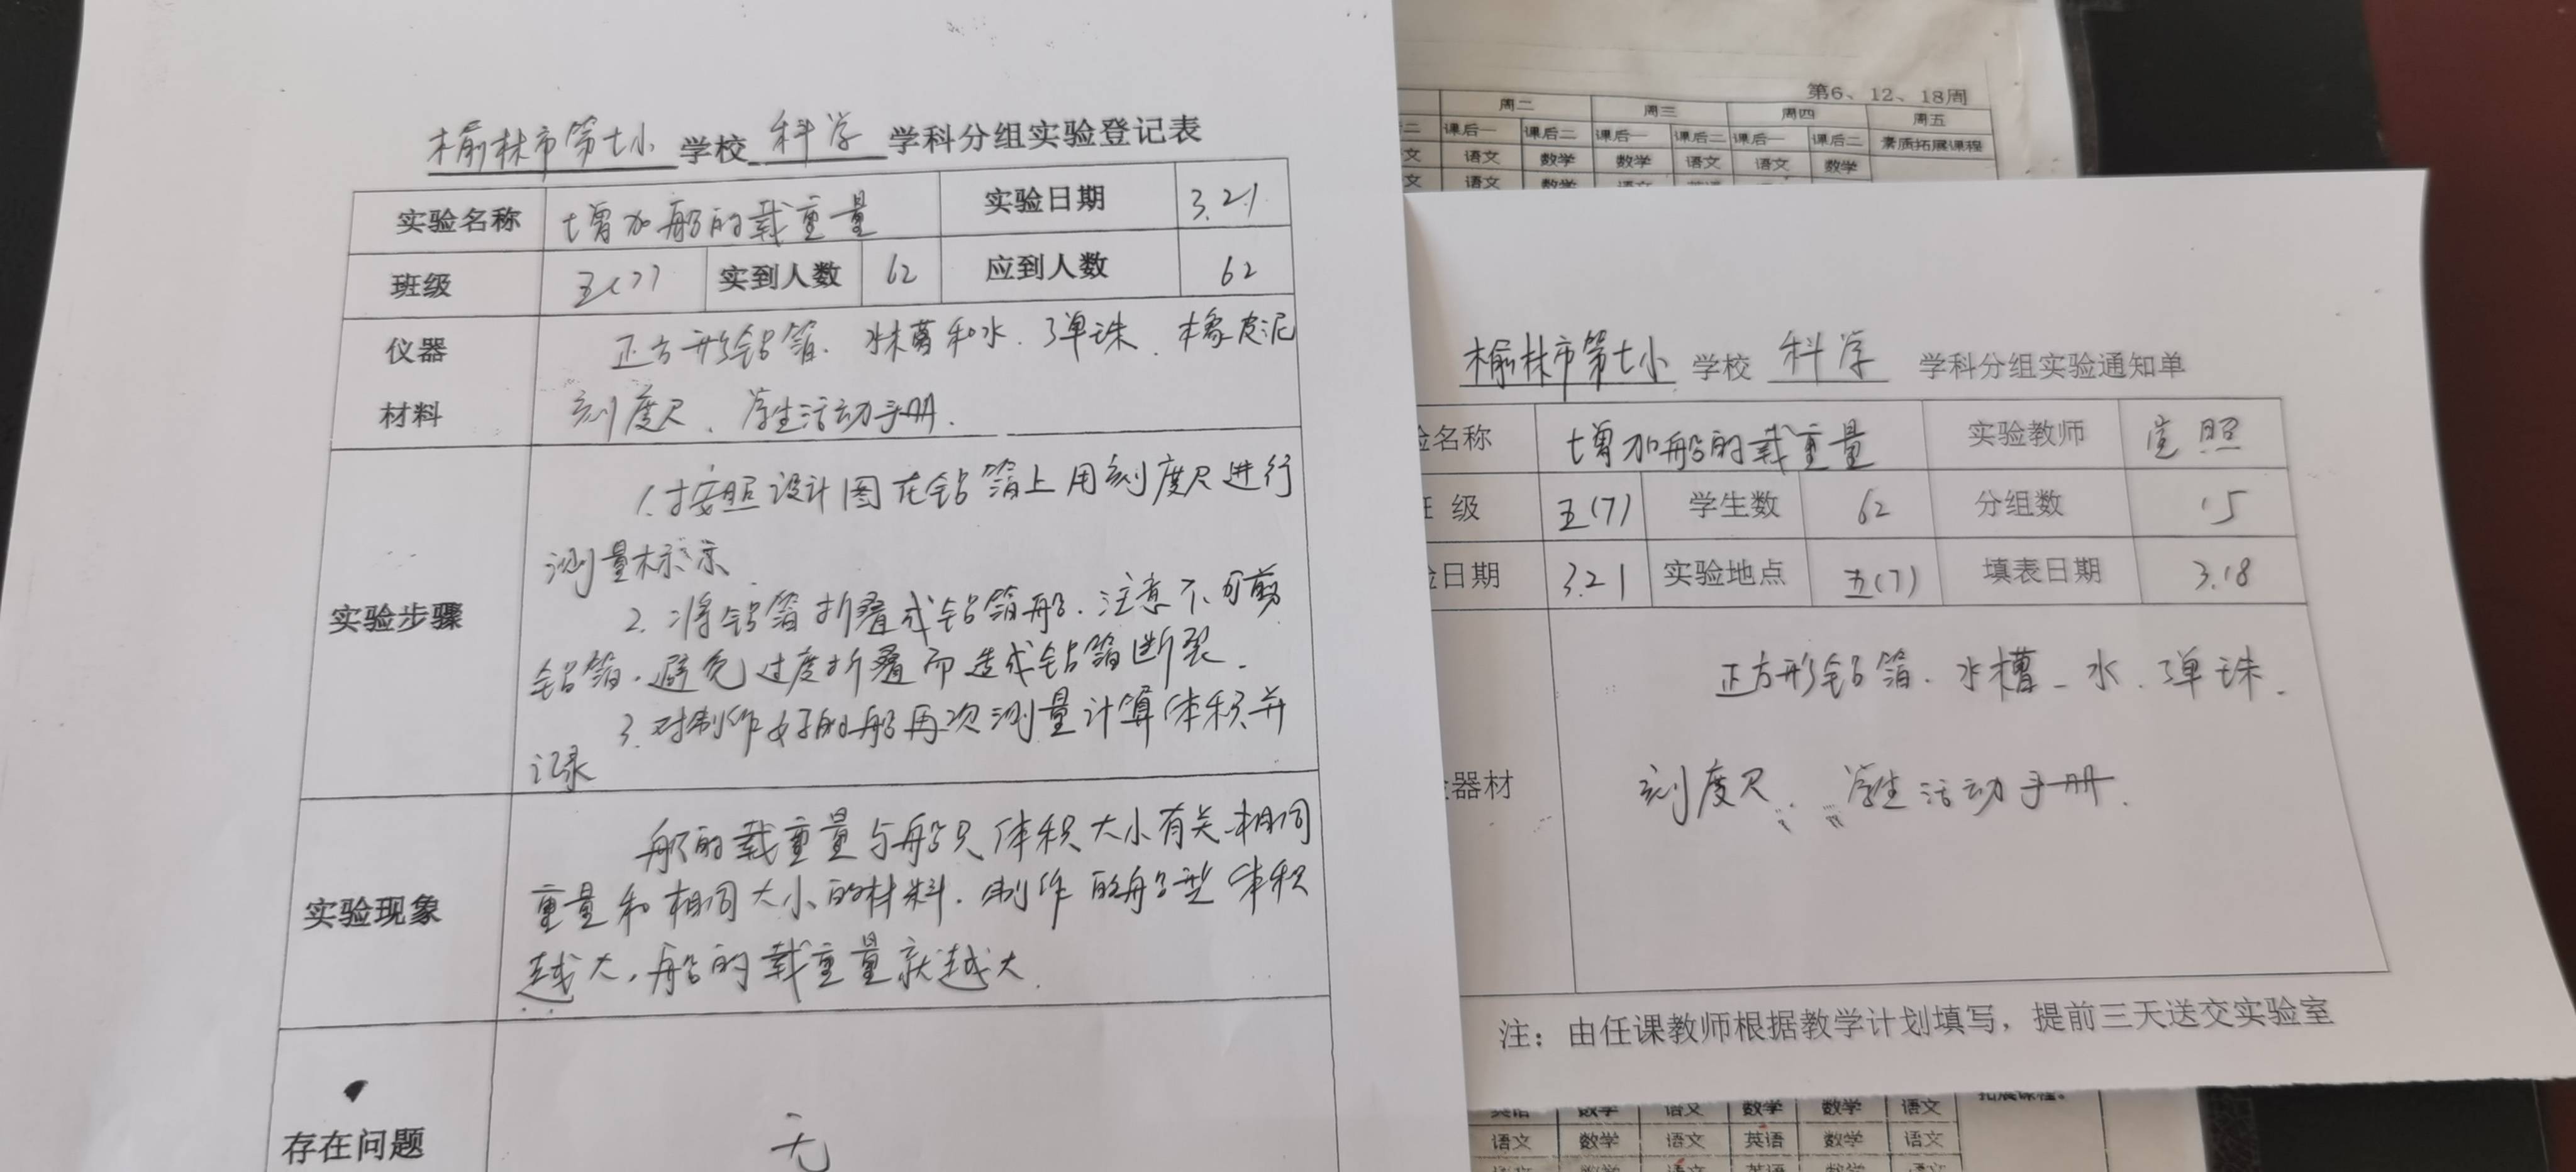 榆林市第七小 学校 科学 学科分组实验登记表
实验名称 增加船的载重量 实验日期 3.21
班级 五(7) 实到人数 62 应到人数 62
仪器 正方形铝箔、水槽和水、弹珠、橡皮泥
材料 刻度尺、学生活动手册.
1.按照设计图在铝箔上用刻度尺进行
测量标示.
实验步骤
2.将铝箔折叠成铝箔船.注意不可剪
铝箔.避免过度折叠而造成铝箔断裂.
3.对制作好的船再次测量计算体积并
记录
船的载重量与船只体积大小有关.相同
实验现象 重量和相同大小的材料.制作的船型体积
越大,船的载重量就越大.
存在问题 无
第6、12、18周
周二 周三 周四 周五
课后一 课后二 课后一 课后二 课后一 课后二 素质拓展课程
语文 数学 数学 语文 语文 数学
语文 数学
榆林市第七小 学校 科学 学科分组实验通知单
名称 增加船的载重量 实验教师 照
级 五(7) 学生数 62 分组数 15
日期 3.21 实验地点 五(7) 填表日期 3.18
正方形铝箔、水槽、水、弹珠、
器材 刻度尺、学生活动手册.
注：由任课教师根据教学计划填写，提前三天送交实验室
英语 数学 语文 数学 数学 语文 拓展课程。
语文 数学 语文 英语 数学 语文